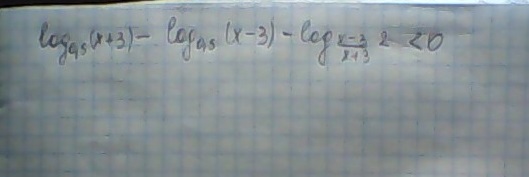 log₀,₅(x+3) - log₀,₅(x-3) - log_{\frac{x-3}{x+3}} 2 < 0